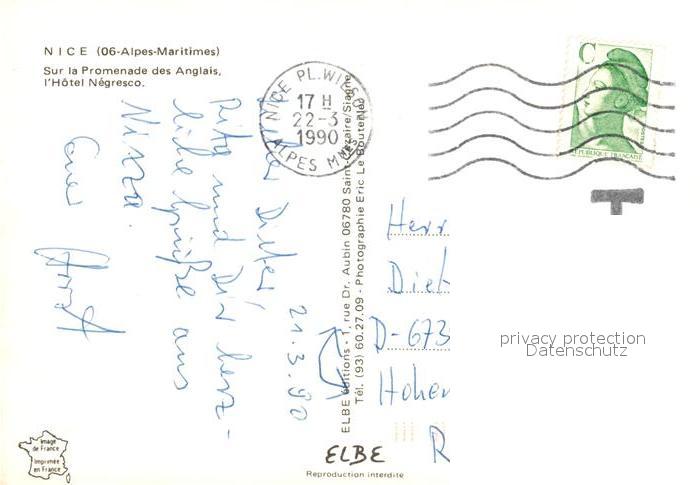 NICE (06-Alpes-Maritimes)
Sur la Promenade des Anglais,
l'Hôtel Négresco.
NICE PL.WILSON
17 H
22-3
1990
ALPES MMES
C
REPUBLIQUE FRANÇAISE
T
21.3.90
Rita und Dir herz-
liche Grüße aus
Nizza.
ELBE éditions - 1, rue Dr. Aubin 06780 Saint-Cézaire/Siagne
Tél. (93) 60.27.09 - Photographie Eric Le Bouteiller
Herr
D-673
privacy protection
Datenschutz
Image
de France
Imprimée
en France
ELBE
Reproduction interdite